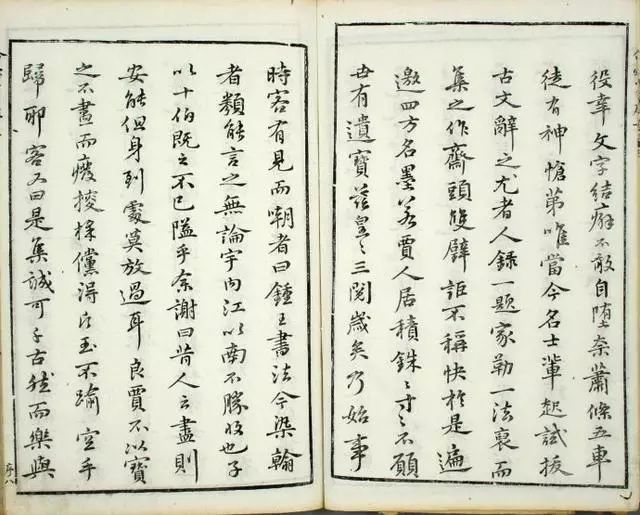 役幸文字結癖不敢自堕奈蕭條五車
徒有神愴弟唯當今名士輩起試扳
古文辭之尤者人錄一題家勒一法裒而
集之作齋頭雙璧詎不稱快於是遍
邀四方名墨若賈人居積銖〻寸〻不願
世有遺寶茲皇〻三閱歲矣乃始事
時客有見而嘲者曰鍾王書法今染翰
者類能言之無論宇內江以南不勝收也子
以十伯既之不已隘乎余謝曰昔人云盡則
安能但身到處莫放過耳良賈不以寶
之不盡而癈搜採儻得片玉不踰空手
歸耶客又曰是集誠可千古然而樂與
序八